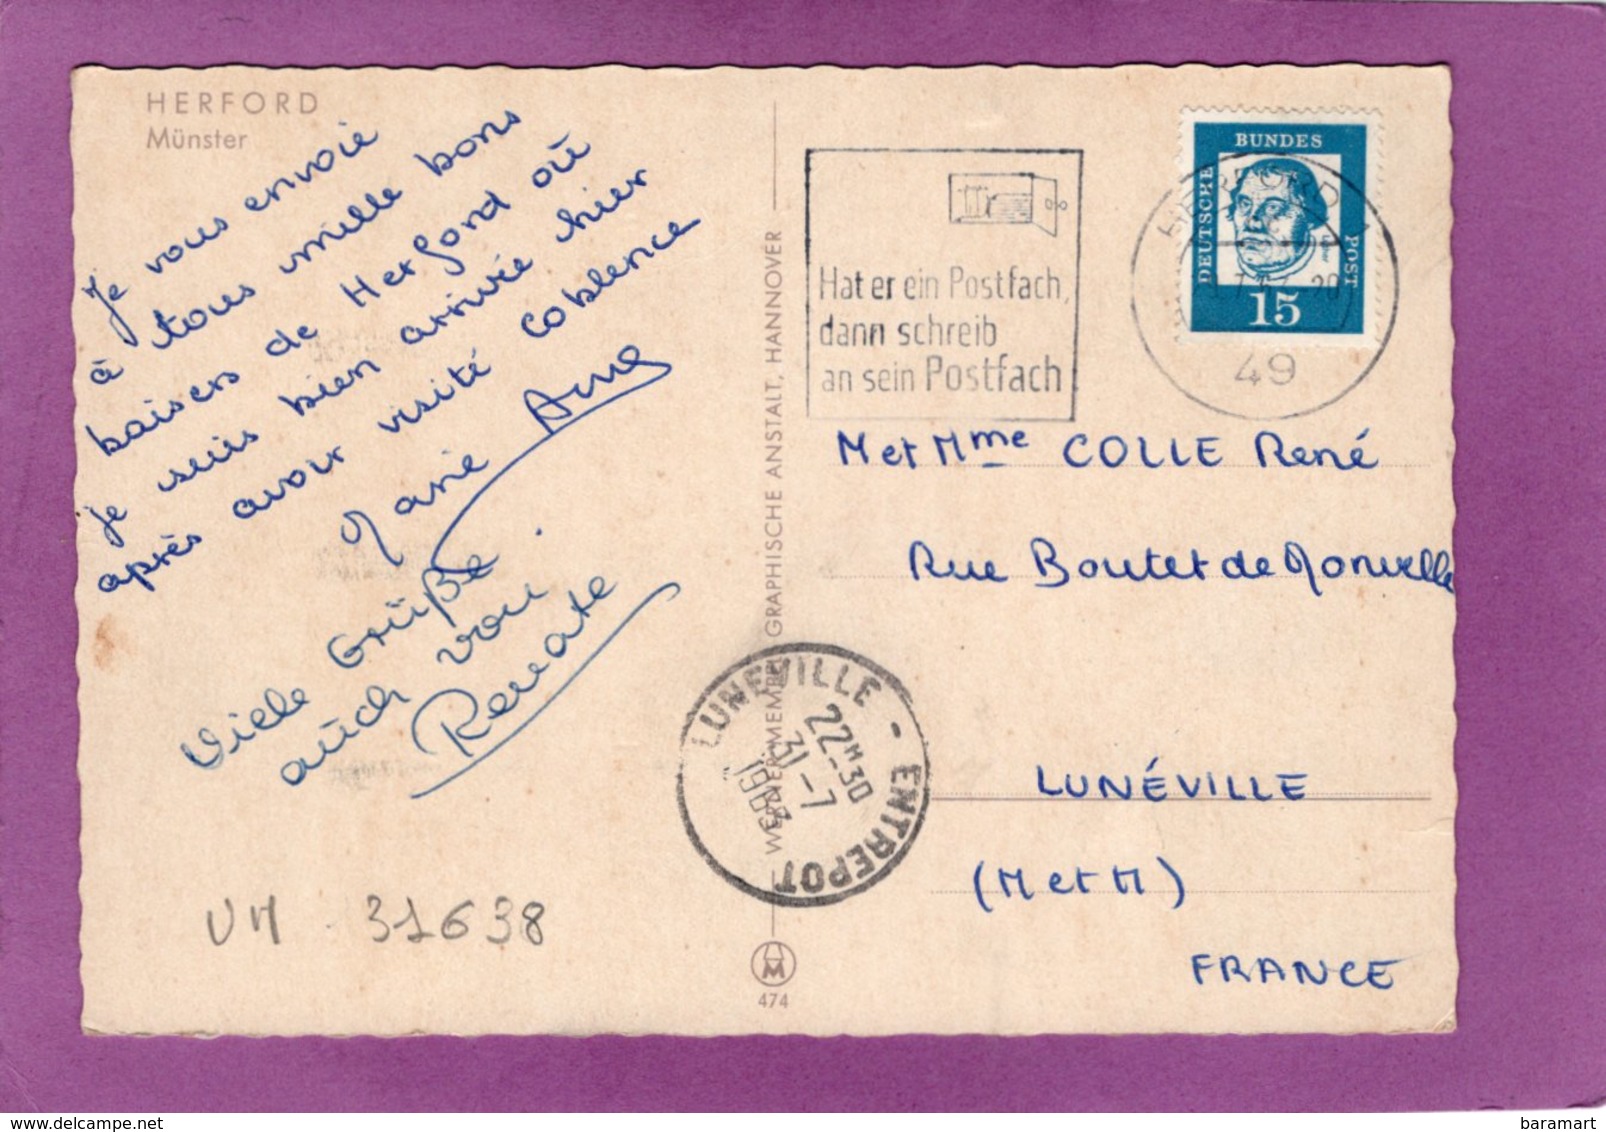 HERFORD
Münster
Je vous envoie
à tous mille bons
baisers de Herford où
je suis bien arrivée hier
après avoir visité Coblence
Marie Anne
Viele Grüße
auch von
Renate
VM 31638
WERNER MEMBR GRAPHISCHE ANSTALT, HANNOVER
M
474
Hat er ein Postfach,
dann schreib
an sein Postfach
DEUTSCHE
BUNDES
POST
15
HERFORD
20
49
M et Mme COLLE René
Rue Boutet de Monvelle
LUNÉVILLE
(M et M)
FRANCE
LUNEVILLE - ENTREPOT
22H30
31-7
1963
baramart